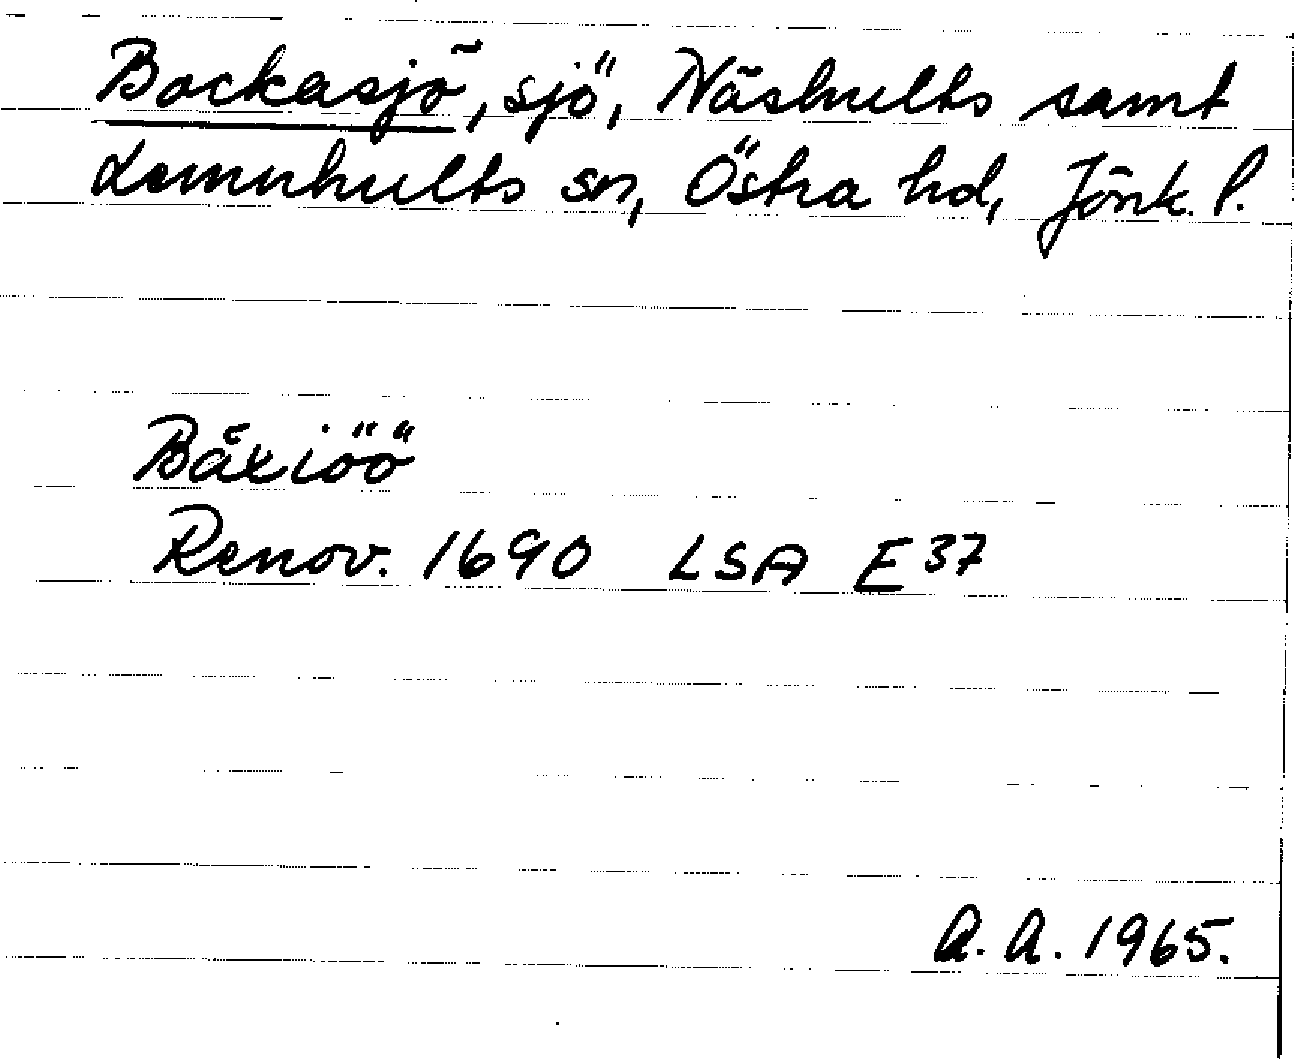 Bockasjö, sjö, Näshults samt
Lemnhults sn, Östra hd, Jönk. l.
Båxiöö
Renov. 1690 LSA E 37
A. A. 1965.